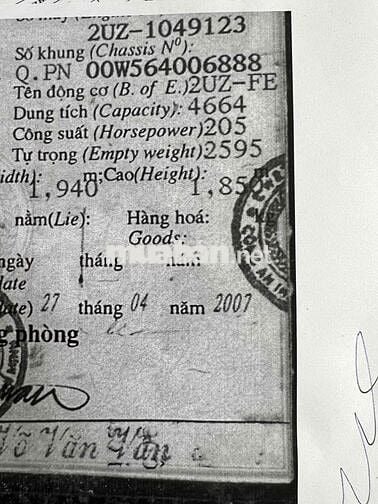 2UZ-1049123
Số khung (Chassis Nº):
Q.PN 00W564006888
Tên động cơ (B. of E.) 2UZ-FE
Dung tích (Capacity): 4664
Công suất (Horsepower) 205
Tự trọng (Empty weight) 2595
idth): m;Cao(Height): m
1,940 1,850
nằm(Lie): Hàng hoá:
Goods:
muaban.net
ngày tháng năm
date
ate) 27 tháng 04 năm 2007
g phòng
Võ Văn Vân